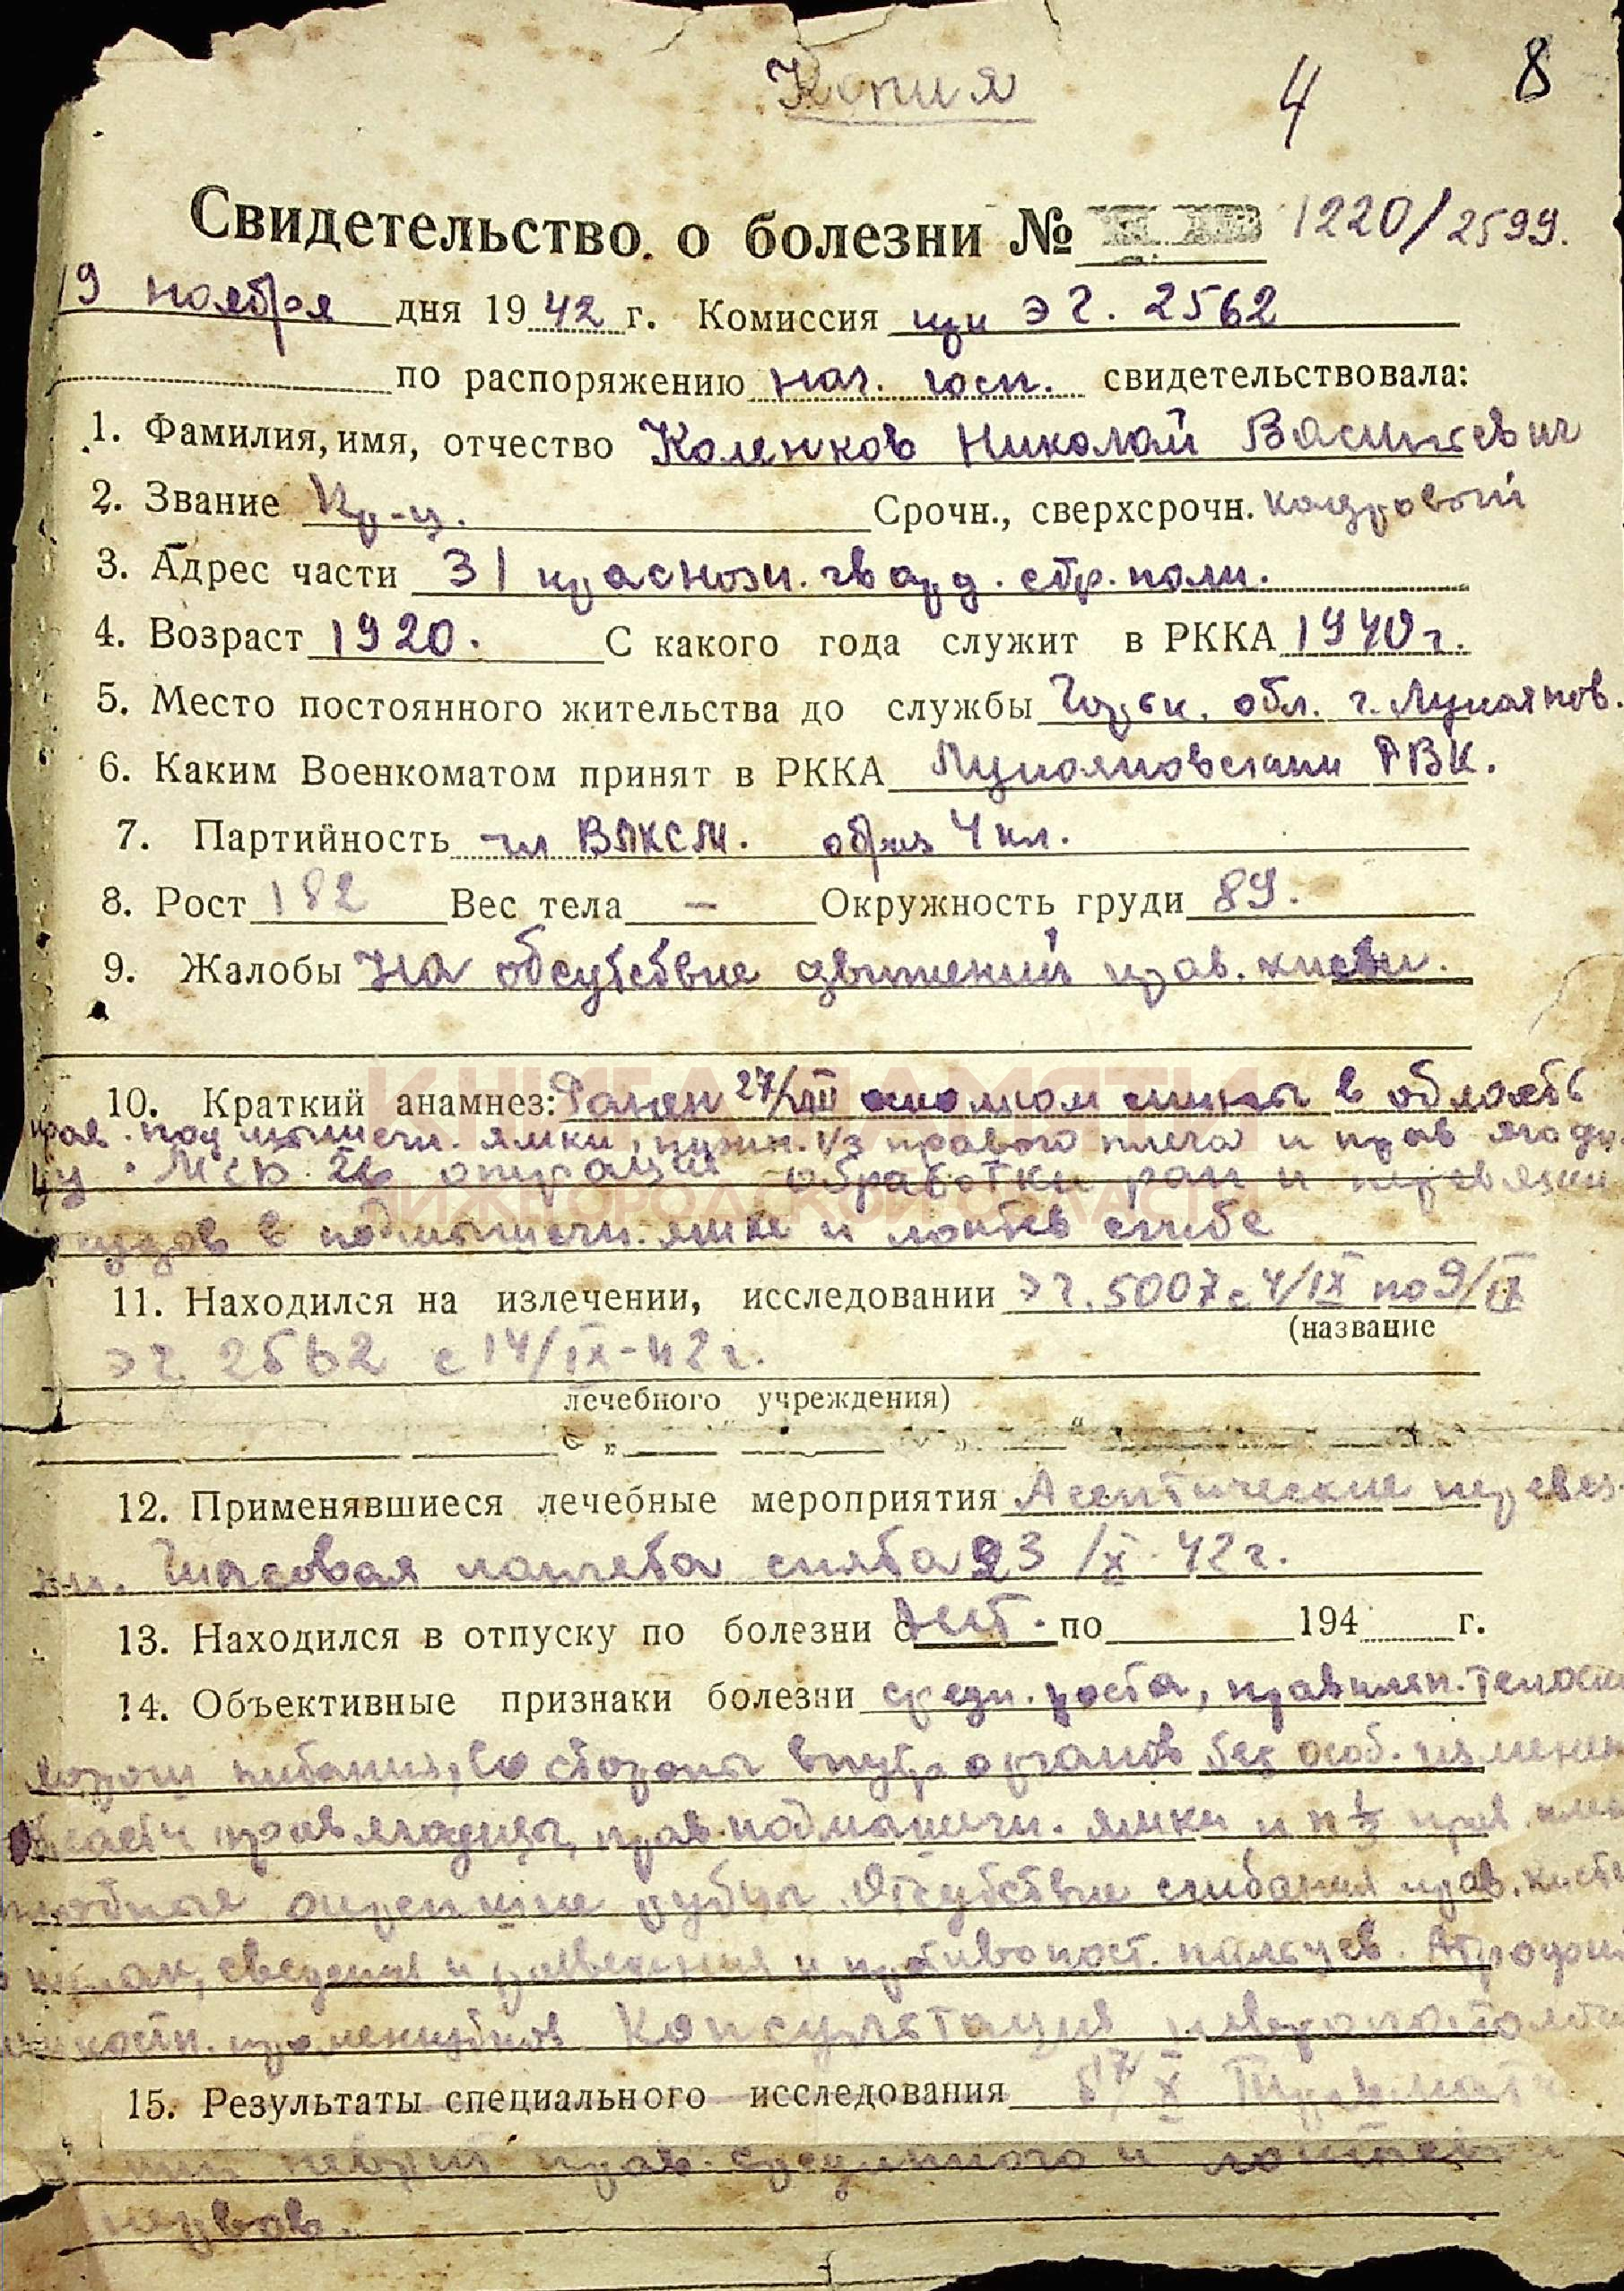 Копия 4 8
Свидетельство о болезни № 1220/2599.
9 ноября дня 1942 г. Комиссия при ЭГ. 2562
по распоряжению нач. госп. свидетельствовала:
1. Фамилия, имя, отчество Коленков Николай Васильевич
2. Звание Кр-ц. Срочн., сверхсрочн. кадровый
3. Адрес части 31 краснозн. гвард. стр. полк.
4. Возраст 1920. С какого года служит в РККА 1940 г.
5. Место постоянного жительства до службы Горьк. обл. г. Лукоянов.
6. Каким Военкоматом принят в РККА Лукояновским РВК.
7. Партийность чл ВЛКСМ. образ 4 кл.
8. Рост 182 Вес тела — Окружность груди 89.
9. Жалобы На отсутствие движений прав. кисти.
КНИГА ПАМЯТИ
10. Краткий анамнез: Ранен 27/VIII осколком мины в область
прав. подмышечн. ямки, нижн. 1/3 правого плеча и прав ягоди
цу. операция обработки ран и перевязки
НИЖЕГОРОДСКОЙ ОБЛАСТИ
сосудов в подмышечн. ямке и локтев сгибе
11. Находился на излечении, исследовании ЭГ. 5007 с 4/IX по 9/IX
(название
ЭГ 2562 с 14/IX-42 г.
лечебного учреждения)
с „ “ „ “
12. Применявшиеся лечебные мероприятия Асептические перевяз-
ки. Гипсовая лангета снята 23/X 42 г.
13. Находился в отпуску по болезни с нет. по 194 г.
14. Объективные признаки болезни средн. роста, правильн. телосл
хорош питания, со стороны внутр органов без особ. изменен
области прав ягодицы, прав подмышечн. ямки и н 1/3 прав. пле
окрепшие рубцы. Отсутствие сгибания прав. кисти
сведения и разведения и противопост. пальцев. Атрофия
межкостн. промежутков. Консультация невропатолога
15. Результаты специального исследования 17/X Травмати
ческий неврит прав. срединного и локтевого
нервов.